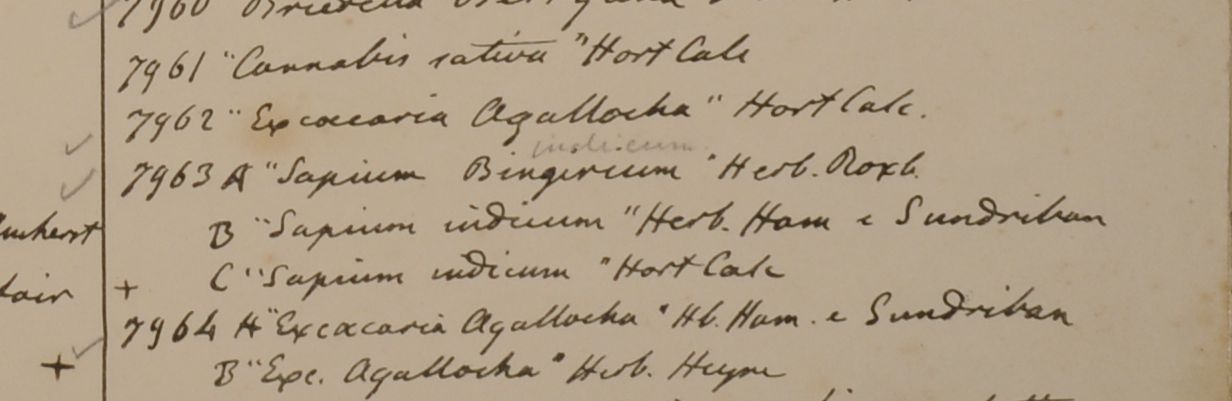 7960
7961 "Cannabis sativa" Hort Calc
7962 "Excoecaria Agallocha" Hort Calc.
indicum
7963 A "Sapium Bingerium" Herb. Roxb.
B "Sapium indicum" Herb. Ham e Sundriban
C "Sapium indicum" Hort Calc
7964 A "Excoecaria Agallocha" Hb. Ham. e Sundriban
B "Exc. Agallocha" Herb. Heyne